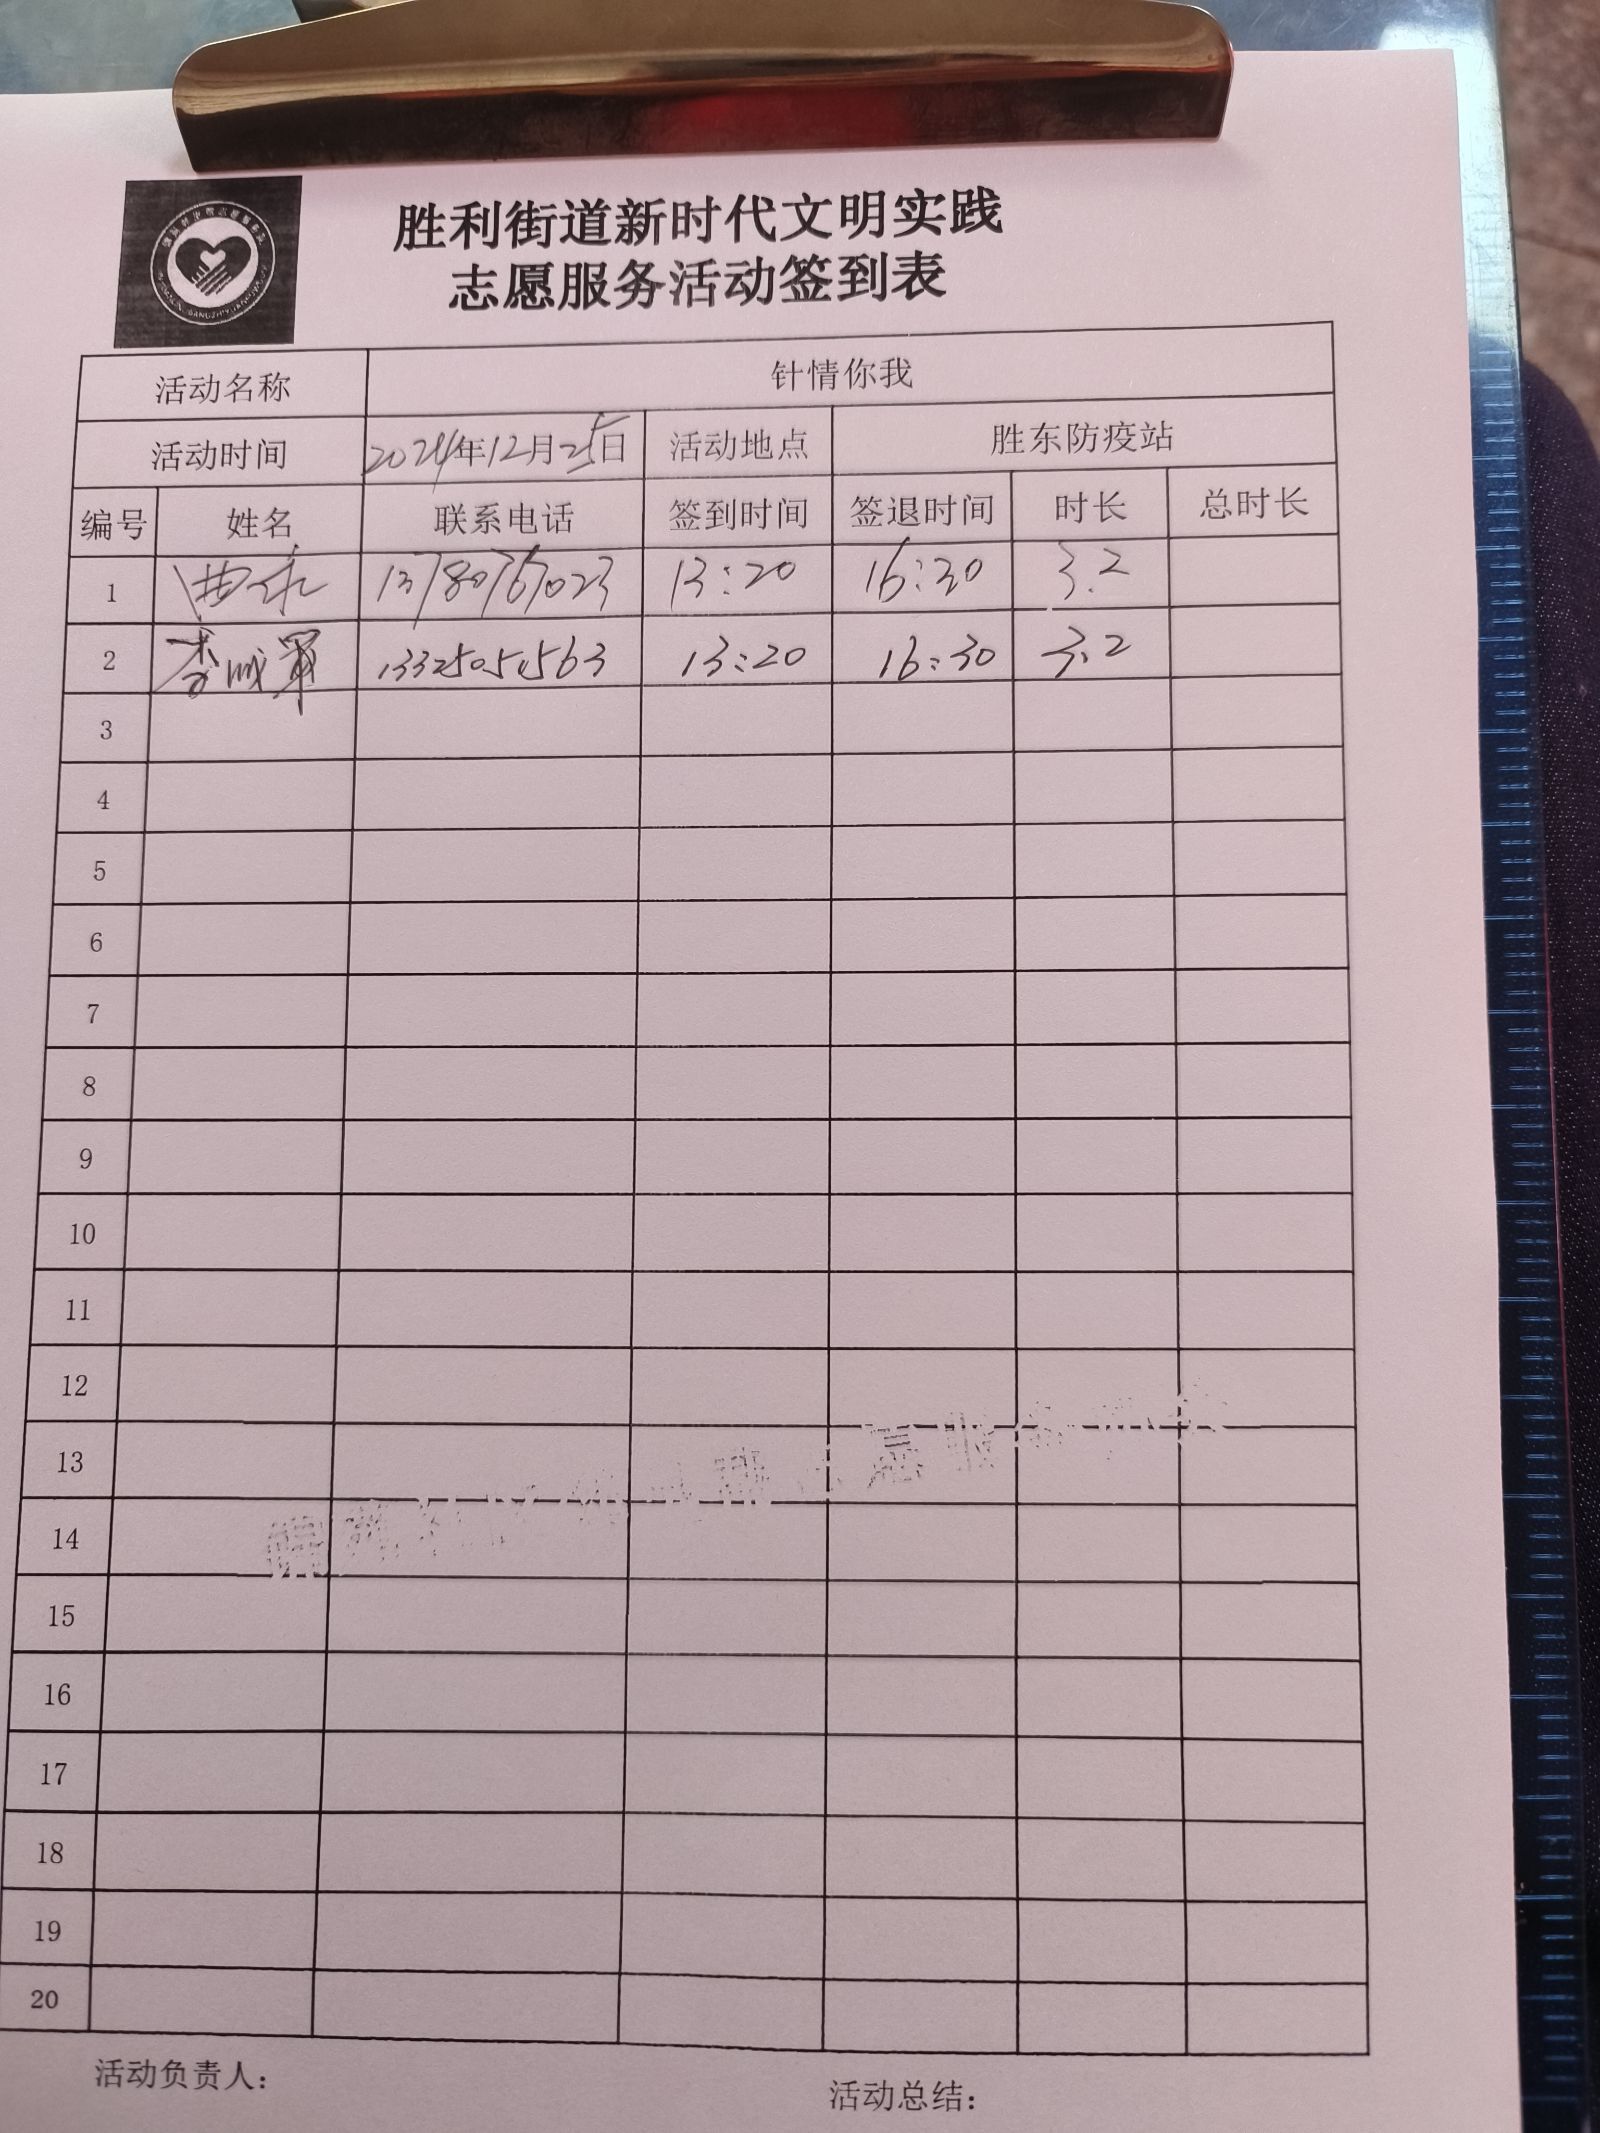 胜利街道新时代文明实践
志愿服务活动签到表
活动名称 针情你我
活动时间 2024年12月25日 活动地点 胜东防疫站
编号 姓名 联系电话 签到时间 签退时间 时长 总时长
1 13780767023 13:20 16:30 3.2
2 李成军 13325051563 13:20 16:30 3.2
3
4
5
6
7
8
9
10
11
12
13
14
15
16
17
18
19
20
活动负责人: 活动总结: